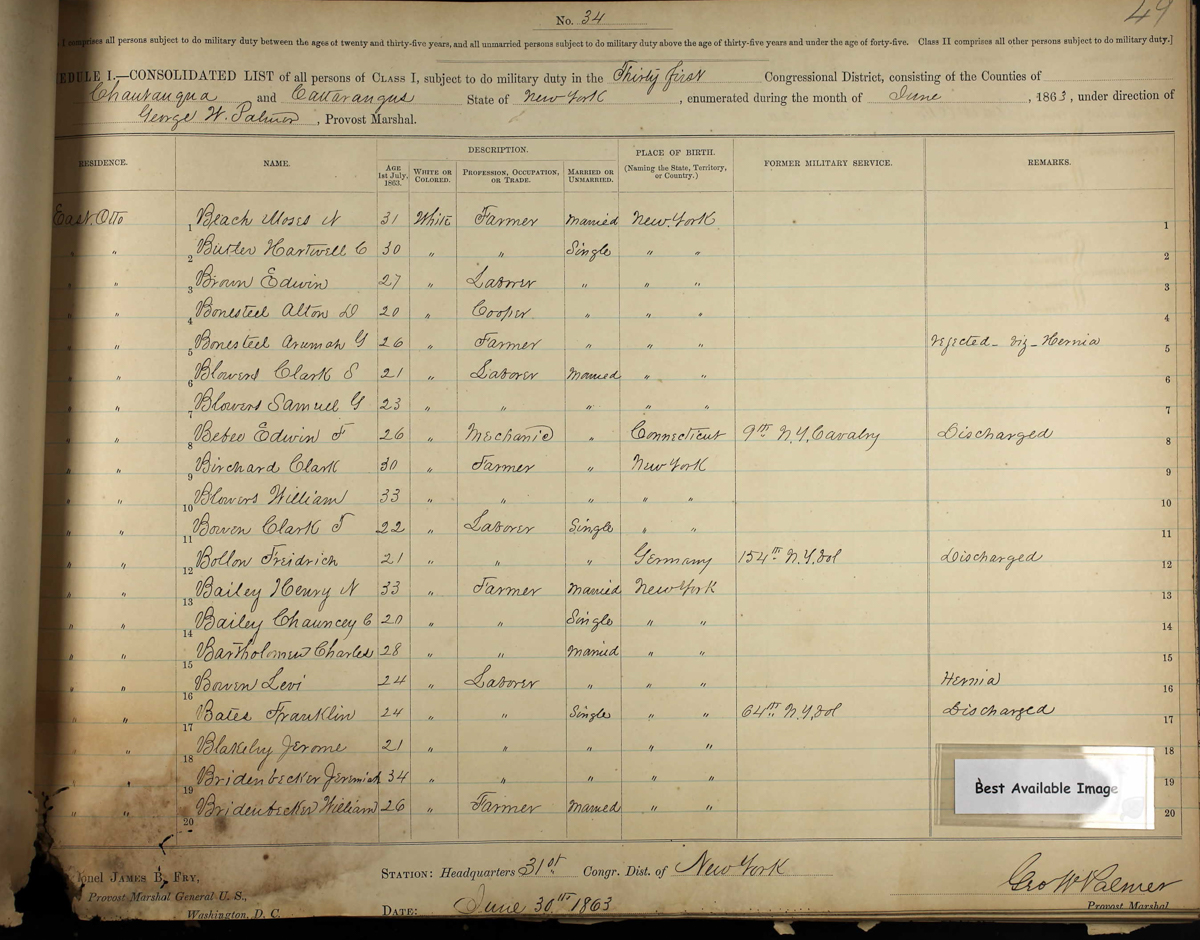 49
No. 34
I comprises all persons subject to do military duty between the ages of twenty and thirty-five years, and all unmarried persons subject to do military duty above the age of thirty-five years and under the age of forty-five. Class II comprises all other persons subject to do military duty.]
EDULE I.—CONSOLIDATED LIST of all persons of CLASS I, subject to do military duty in the Thirty first Congressional District, consisting of the Counties of
Chautauqua and Cattaraugus State of New York, enumerated during the month of June, 1863, under direction of
George W. Palmer, Provost Marshal.
RESIDENCE. NAME. AGE 1st July, 1863. DESCRIPTION. WHITE OR COLORED. PROFESSION, OCCUPATION, OR TRADE. MARRIED OR UNMARRIED. PLACE OF BIRTH. (Naming the State, Territory, or Country.) FORMER MILITARY SERVICE. REMARKS.
East Otto 1 Beach Moses N 31 White Farmer Married New York 1
" " 2 Butler Hartwell C 30 " " Single " " 2
" " 3 Brown Edwin 27 " Laborer " " " 3
" " 4 Bonesteel Alton D 20 " Cooper " " " 4
" " 5 Bonesteel Arumah G 26 " Farmer " " " rejected - viz - Hernia 5
" " 6 Blowers Clark S 21 " Laborer Married " " 6
" " 7 Blowers Samuel G 23 " " " " " 7
" " 8 Bebee Edwin F 26 " Mechanic " Connecticut 9th N.Y. Cavalry Discharged 8
" " 9 Birchard Clark 30 " Farmer " New York 9
" " 10 Blowers William 33 " " " " " 10
" " 11 Bowen Clark T 22 " Laborer Single " " 11
" " 12 Bollon Freidrich 21 " " " Germany 154th N.Y. Vol Discharged 12
" " 13 Bailey Henry N 33 " Farmer Married New York 13
" " 14 Bailey Chauncey C 20 " " Single " " 14
" " 15 Bartholomew Charles 28 " " Married " " 15
" " 16 Bowen Levi 24 " Laborer " " " Hernia 16
" " 17 Bates Franklin 24 " " Single " " 64th N.Y. Vol Discharged 17
" 18 Blakeley Jerome 21 " " " " " 18
" 19 Bridenbecker Jeremiah 34 " " " " " 19
" " 20 Bridenbecker William 26 " Farmer Married " " 20
Best Available Image
onel JAMES B. FRY,
Provost Marshal General U. S.,
Washington, D. C.
STATION: Headquarters 31st Congr. Dist. of New York
DATE: June 30th 1863
Geo W Palmer
Provost Marshal